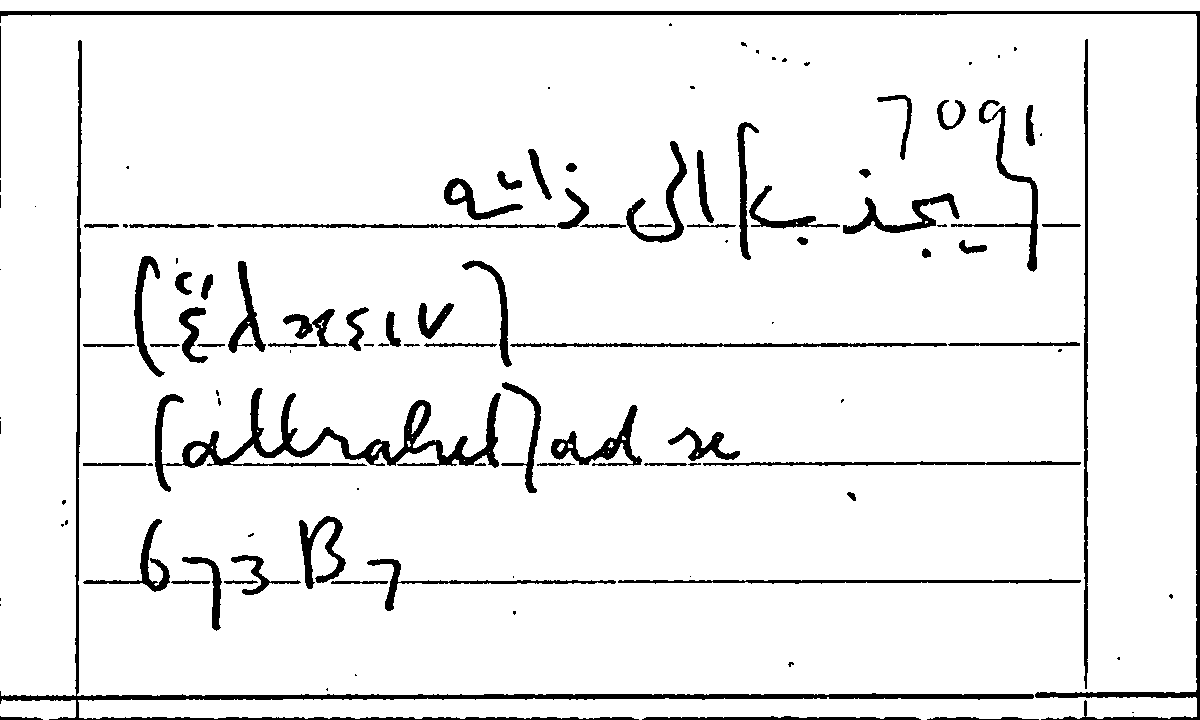 7091
(يجذب) الى ذاته
(ἕλκειν)
(attrahit) ad se
673 B 7